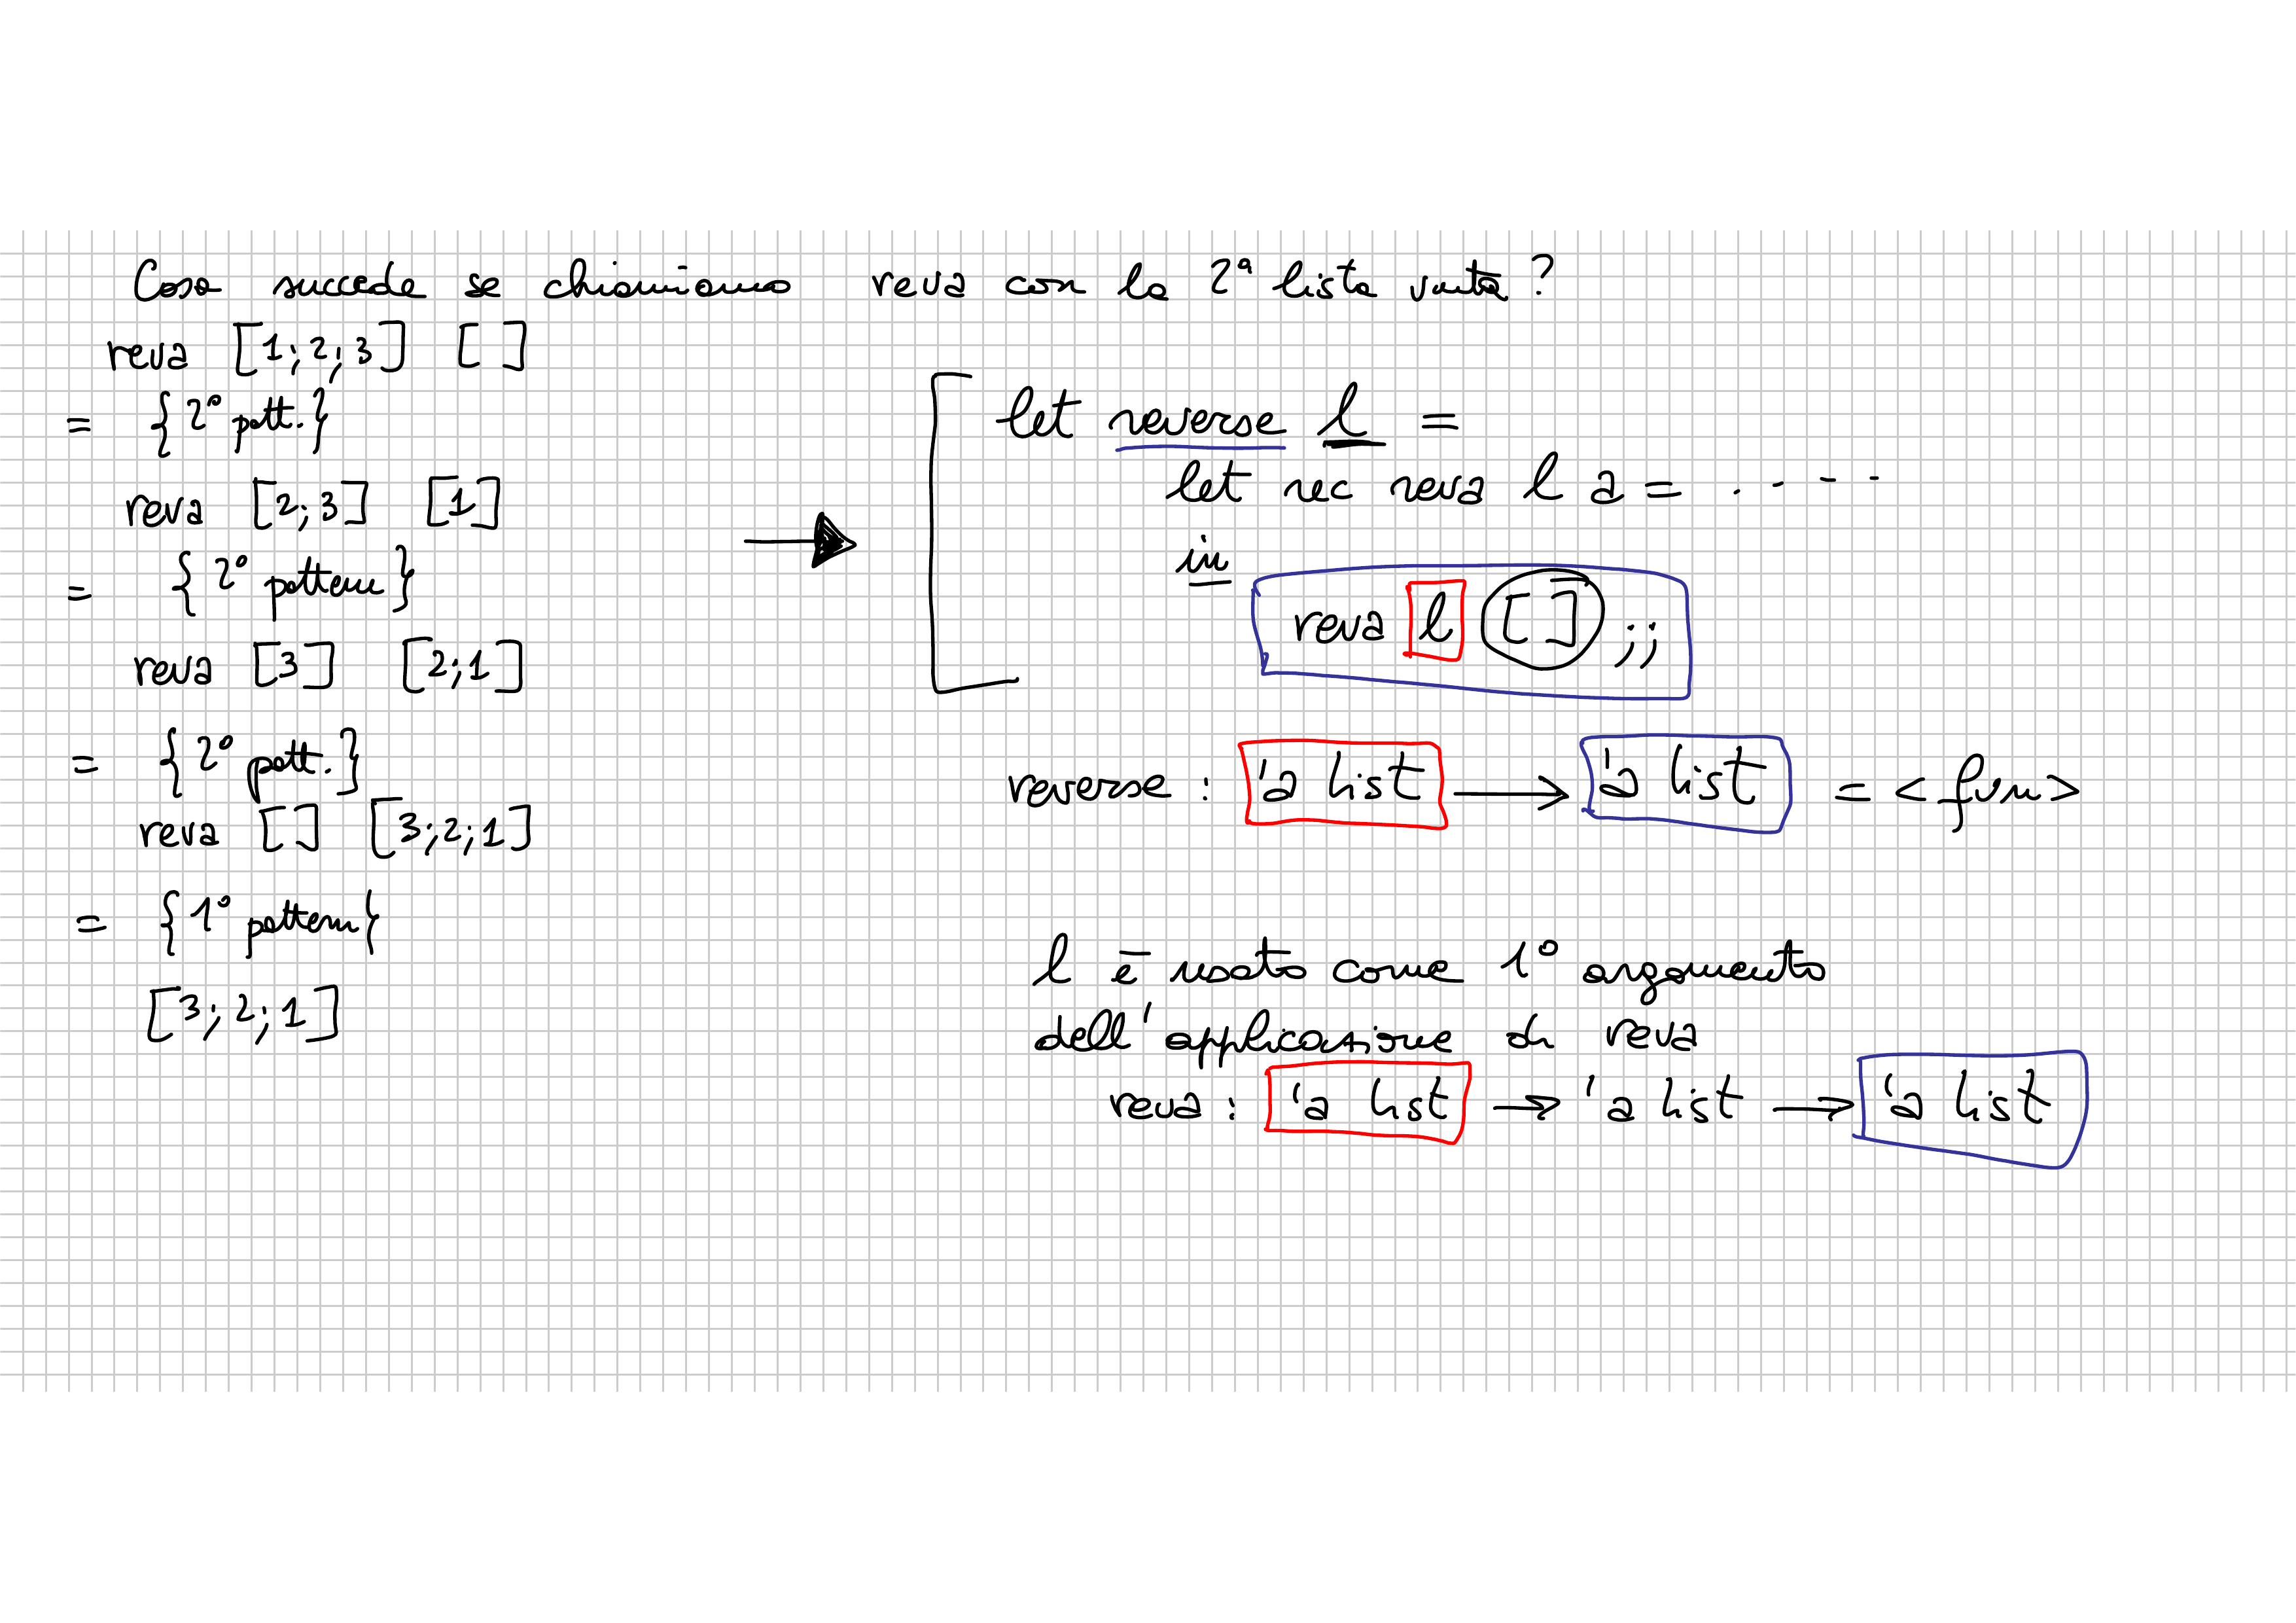 Cosa succede se chiamiamo reva con la 2ª lista vuota?
reva [1;2;3] []
= {2° patt.}
reva [2;3] [1]
= {2° pattern}
reva [3] [2;1]
= {2° patt.}
reva [] [3;2;1]
= {1° pattern}
[3;2;1]
let reverse l =
let rec reva l a = .....
in
reva l [] ;;
reverse : 'a list → 'a list = <fun>
l è usato come 1° argomento
dell'applicazione di reva
reva : 'a list → 'a list → 'a list